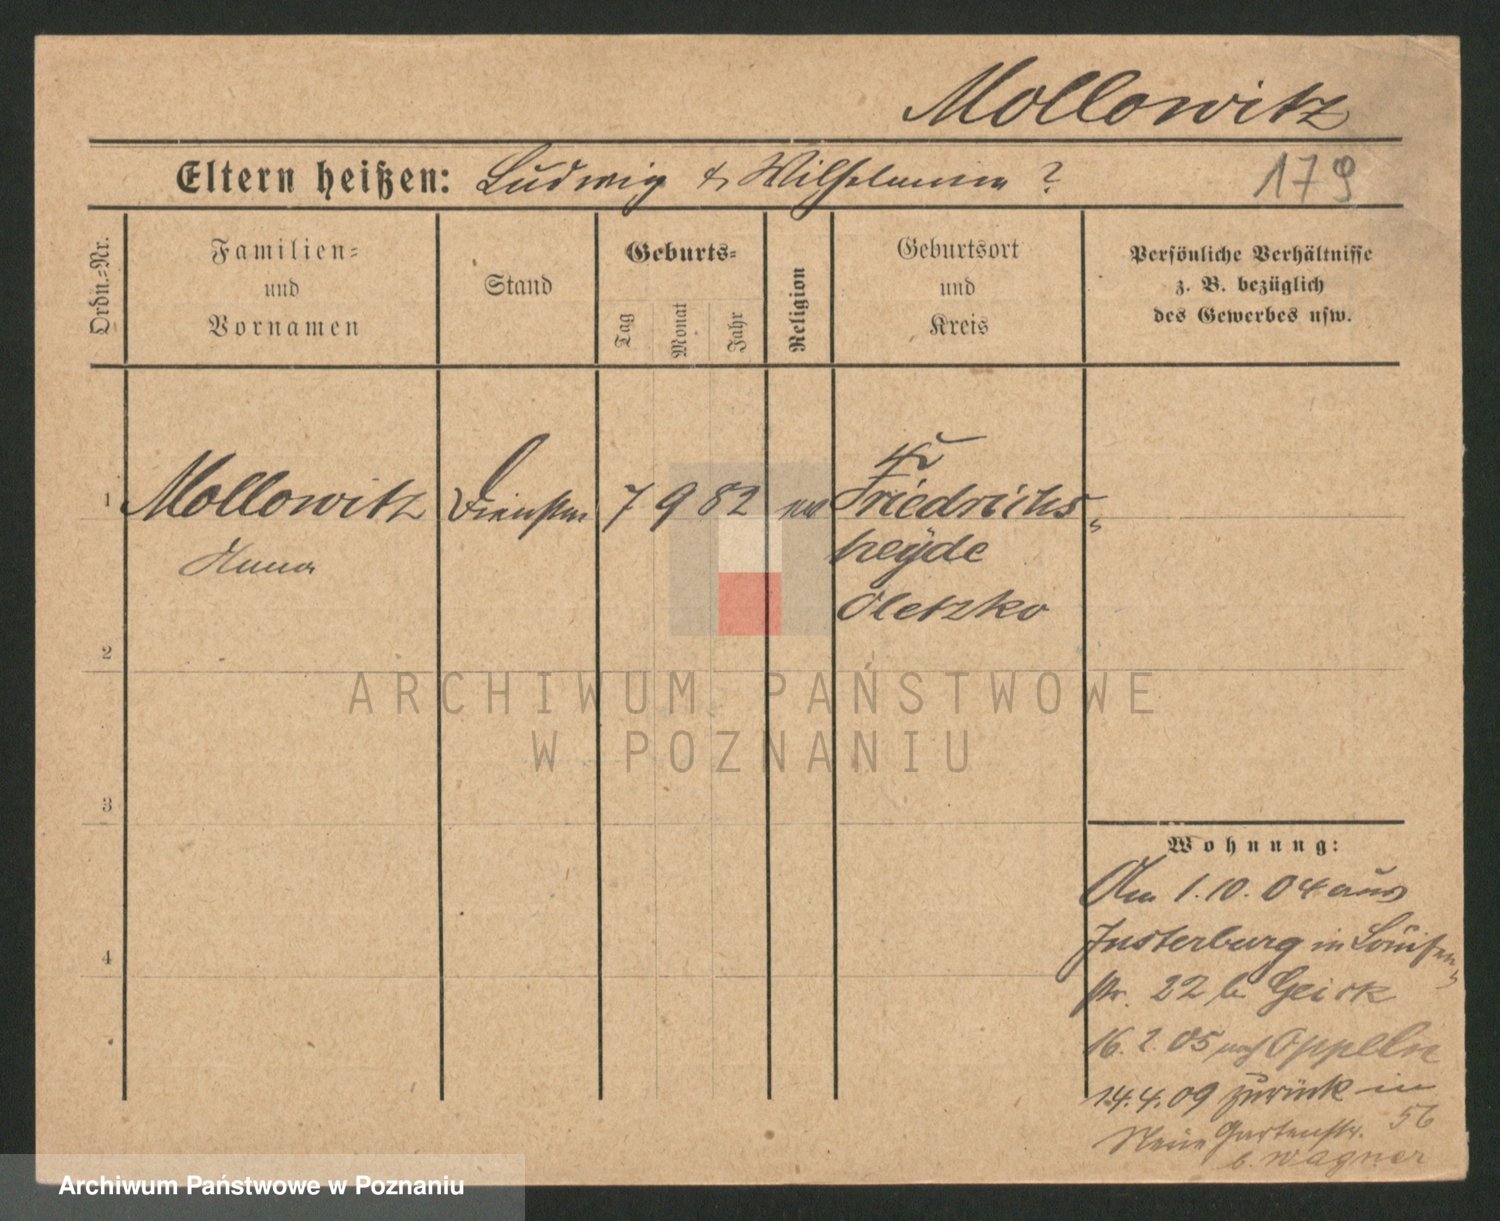 Mollowitz
Eltern heißen: Ludwig & Wilhelmine ?
179
Ordn.=Nr.
Familien=
und
Vornamen
Stand
Geburts=
Tag
Monat
Jahr
Religion
Geburtsort
und
Kreis
Persönliche Verhältnisse
z. B. bezüglich
des Gewerbes usw.
1
Mollowitz
7 9 82
Friedrichs
heyde
Oletzko
2
ARCHIWUM PAŃSTWOWE
W POZNANIU
3
4
Wohnung:
Am 1.10.04 aus
Insterburg in Louisen
str. 22 b
16.2.05 nach Oppeln
14.4.09 zurück in
Neue Gartenstr. 56
b. Wagner
Archiwum Państwowe w Poznaniu